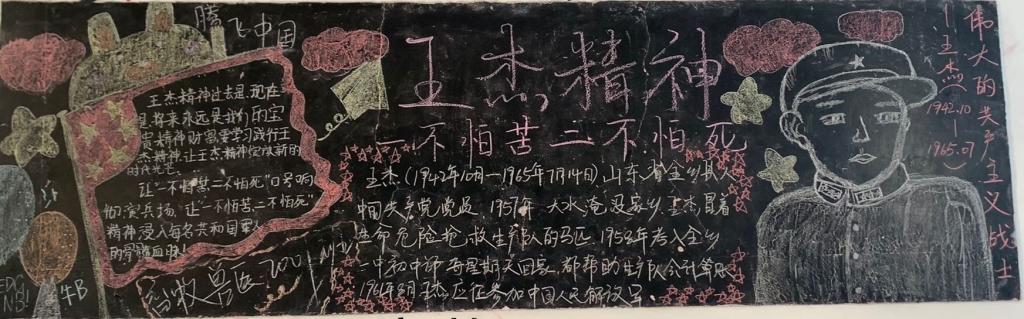 腾飞中国
王杰精神过去是,现在
是,将来永远是我们的宝
贵精神财富,要学习践行王
杰精神,让王杰精神绽放新的
时代光芒。
让"一不怕苦二不怕死"口号响
彻演兵场,让"一不怕苦、二不怕死"
精神浸入每名共和国军人
的骨髓血脉!
牛B
王杰精神
一不怕苦二不怕死
王杰(1942年10月—1965年7月14日),山东省金乡县人
中国共产党党员,1957年大水淹没家乡,王杰冒着
生命危险抢救生产队的马匹,1958年考入金乡
一中初中部,每星期天回家,都帮助生产队会计算账
王杰应征参加中国人民解放军。
伟大的共产主义战士
—王杰
(1942.10
—
1965.07)